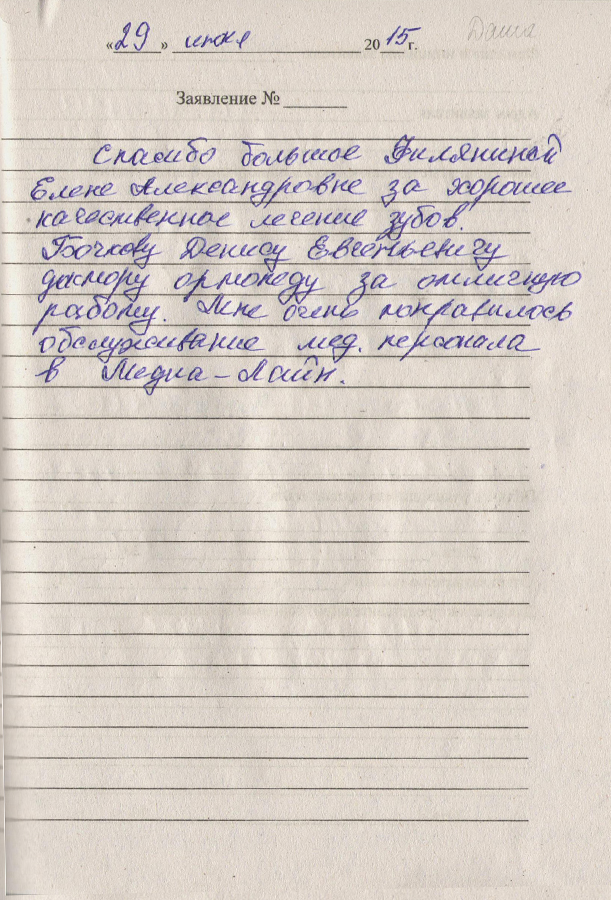 Даша
«29» июня 2015 г.
Заявление №
Спасибо большое
Елене Александровне за хорошее
качественное лечение зубов.
Бочкову Денису Евгеньевичу
доктору ортопеду за отличную
работу. Мне очень понравилось
обслуживание мед. персонала
в Медиа-Лайн.